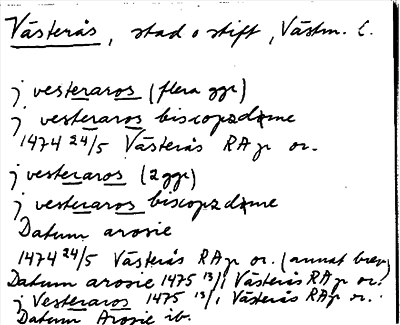 Västerås, stad o stift, Västm. l.
j vesteraros (flera ggr)
j vesteraros biscopzdøme
1474 24/5 Västerås RAp or.
j vesteraros (2 ggr)
j vesteraros biscopzdøme
Datum arosie
1474 24/5 Västerås RAp or. (annat brev)
Datum arosie 1475 13/1 Västerås RAp or.
j Vesteraros 1475 13/1 Västerås RAp or.
Datum Arosie ib.